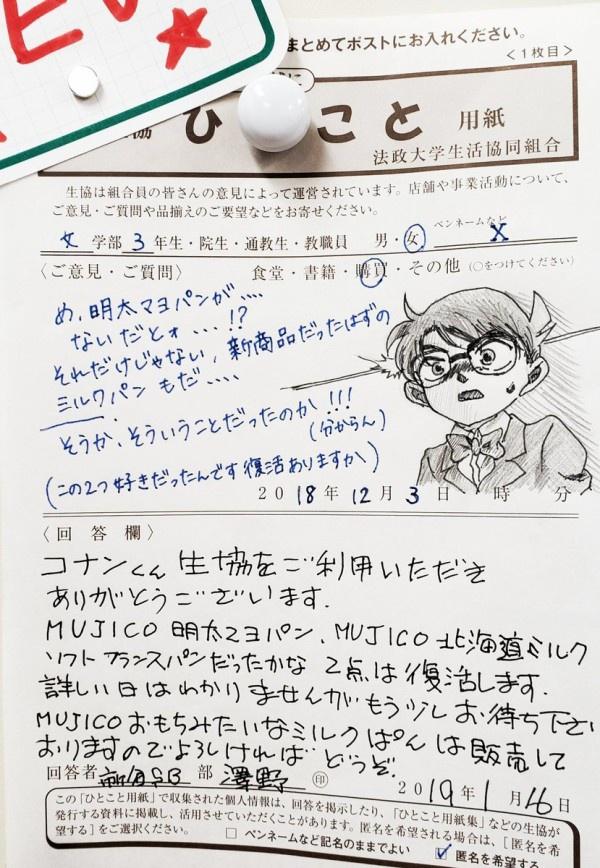 まとめてポストにお入れください。
＜1枚目＞
ひ こと 用紙
法政大学生活協同組合
生協は組合員の皆さんの意見によって運営されています。店舗や事業活動について、
ご意見・ご質問や品揃えのご要望などをお寄せください。
文 学部 3 年生・院生・通教生・教職員 男・女 ペンネームなど X
〈ご意見・ご質問〉 食堂・書籍・購買・その他 (○をつけてください)
め、明太マヨパンが‥‥
ないだとォ‥‥!?
それだけじゃない、新商品だったはずの
ミルクパンもだ‥‥
そうか、そういうことだったのか!!!
(分からん)
(この2つ好きだったんです復活ありますか)
2018年12月3日 時 分
〈回答欄〉
コナンくん 生協をご利用いただき
ありがとうございます。
MUJICO 明太マヨパン、MUJICO 北海道ミルク
ソフトフランスパンだったかな 2点は復活します。
詳しい日はわかりませんがもう少しお待ち下さい
MUJICOおもちみたいなミルクぱんは販売して
おりますのでよろしければどうぞ。
回答者 部 澤野 印 2019年1月16日
この「ひとこと用紙」で収集された個人情報は、回答を掲示したり、「ひとこと用紙集」などの生協が
発行する資料に掲載し、活用させていただくことがあります。匿名を希望される場合は、[匿名を希
望する]をご選択ください。 □ ペンネームなど記名のままでよい ☑ 匿名を希望する